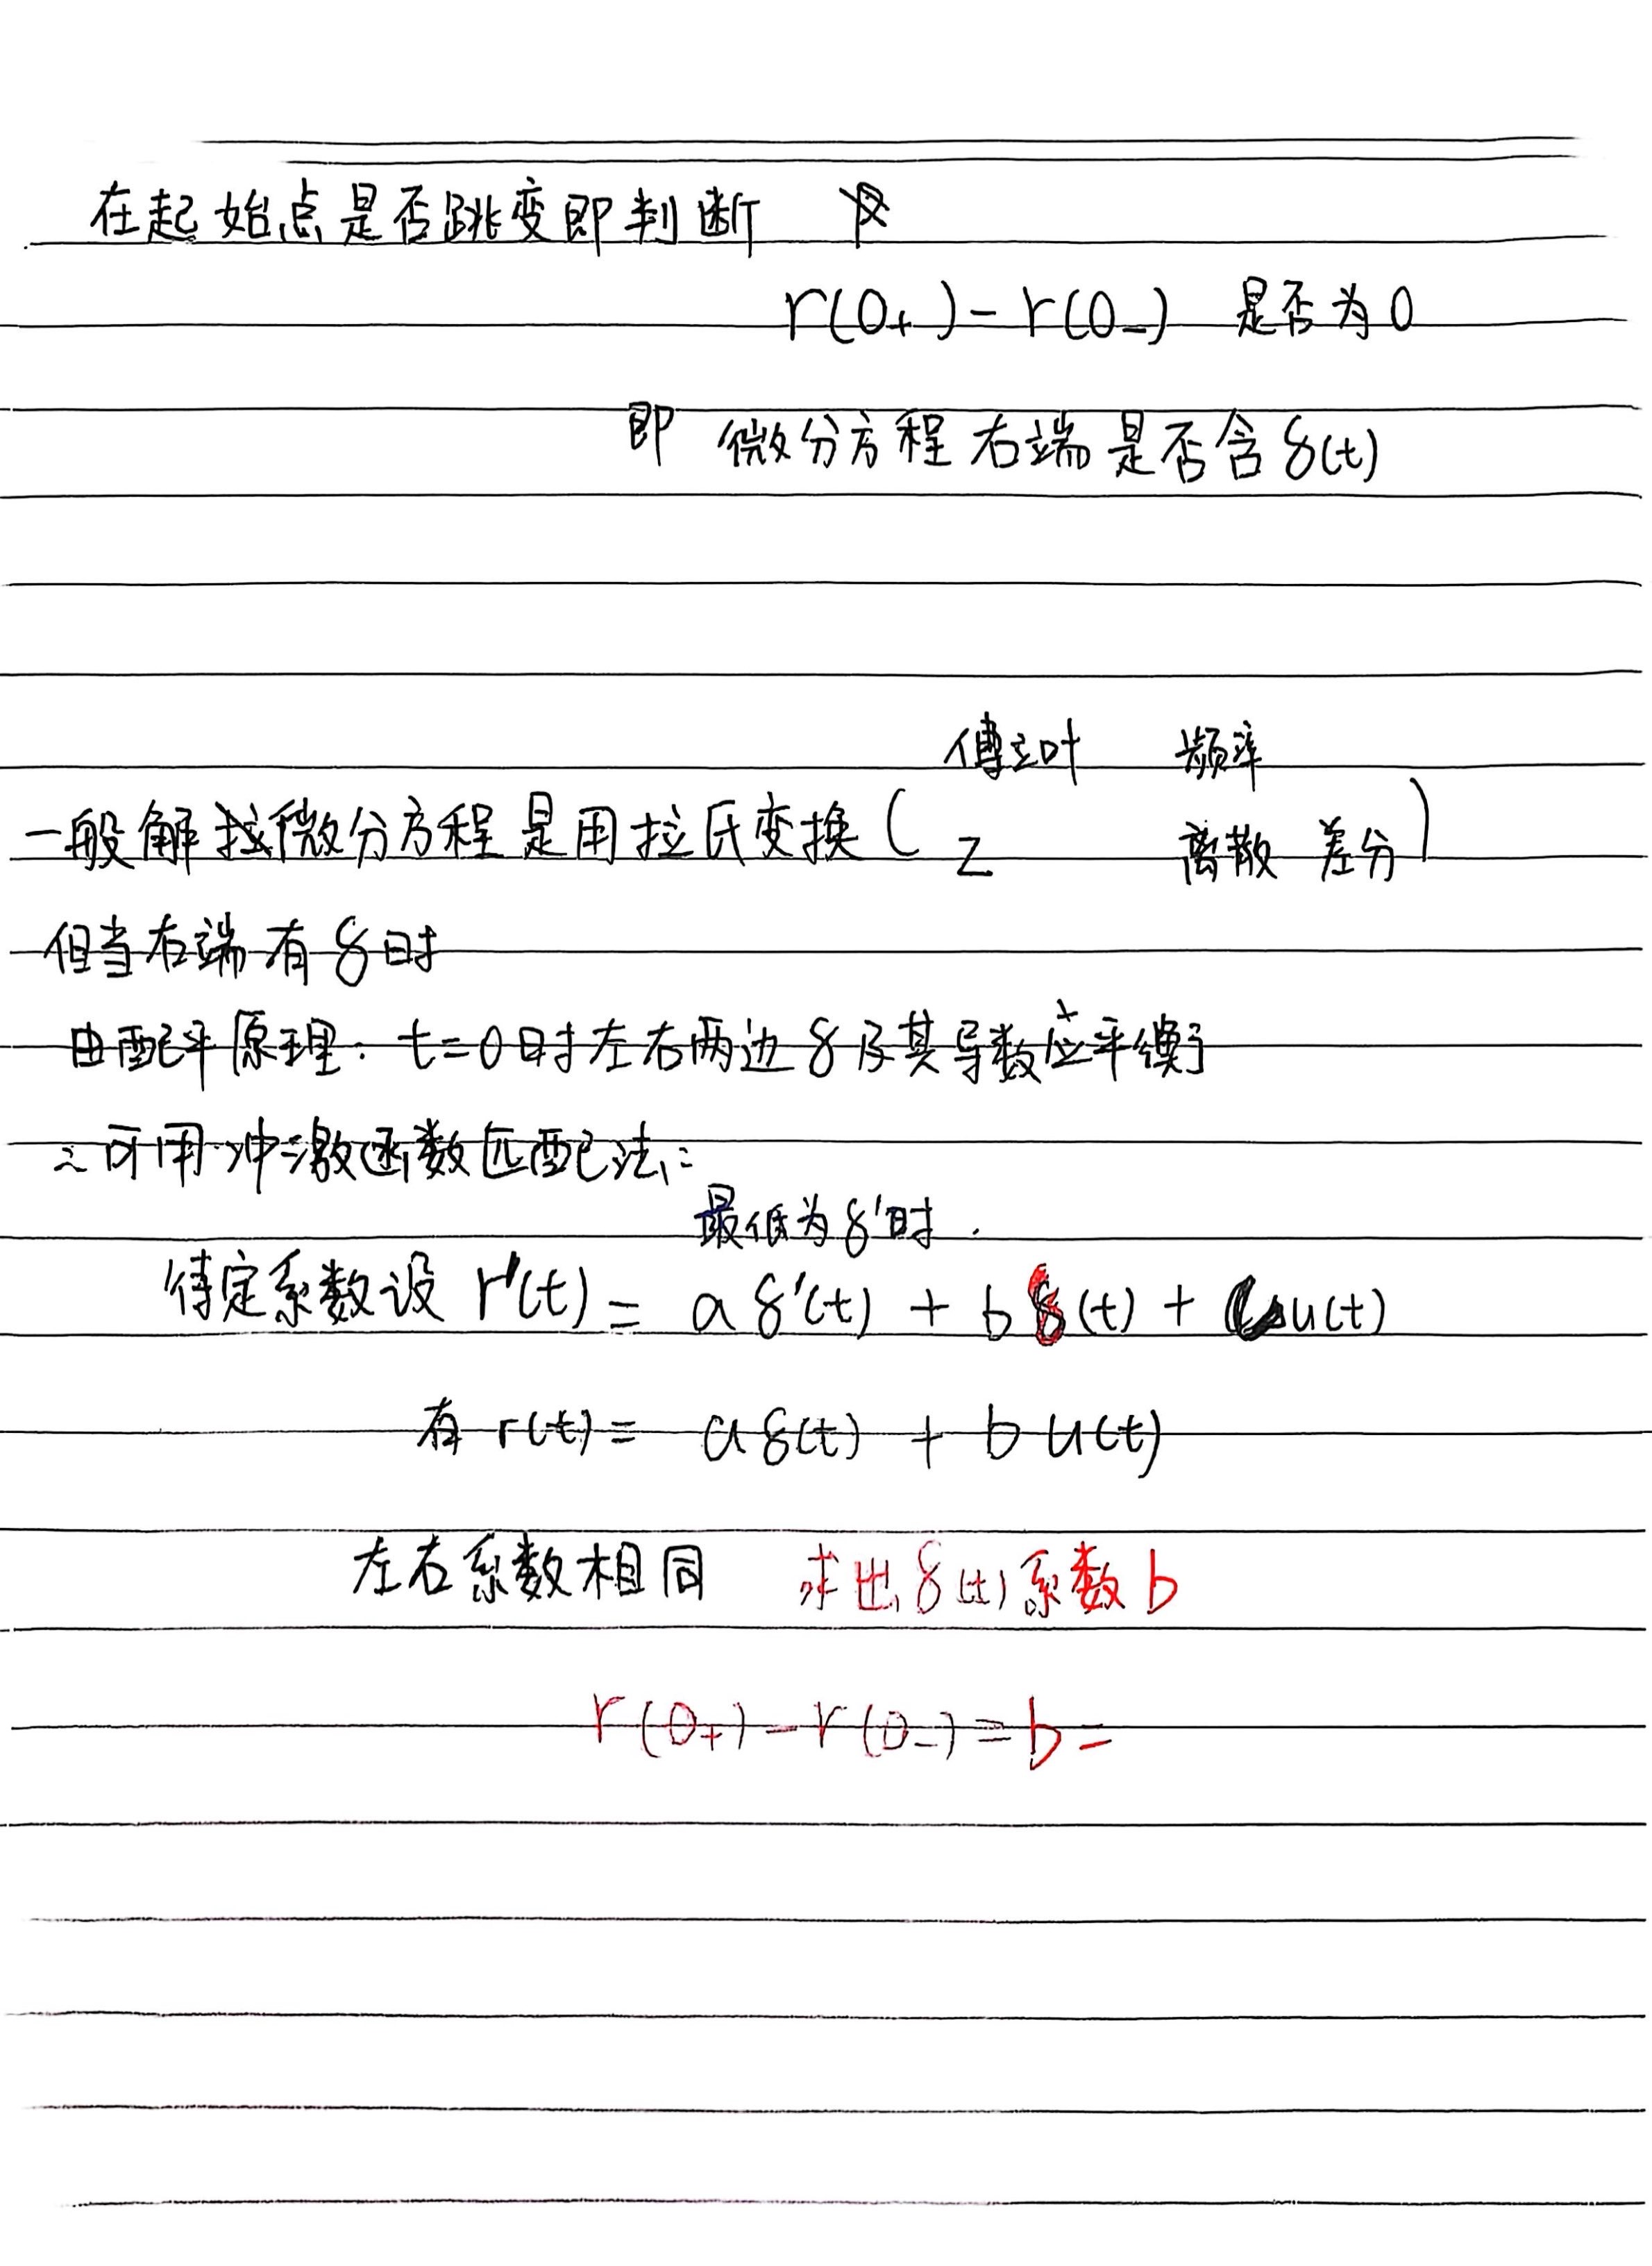 在起始点是否跳变即判断
r(0₊)-r(0₋) 是否为0
即 微分方程右端是否含δ(t)
傅立叶 频率
一般解微分方程是用拉氏变换( Z 离散 差分)
但当右端有δ时
由配平原理: t=0时左右两边δ及其导数应平衡
∴可用冲激函数匹配法:
最低为δ'时.
待定系数设 r'(t)= aδ'(t) + bδ(t) + cu(t)
有 r(t)= aδ(t) + bu(t)
左右系数相同 求出δ(t)系数b
r(0₊)-r(0₋)=b=